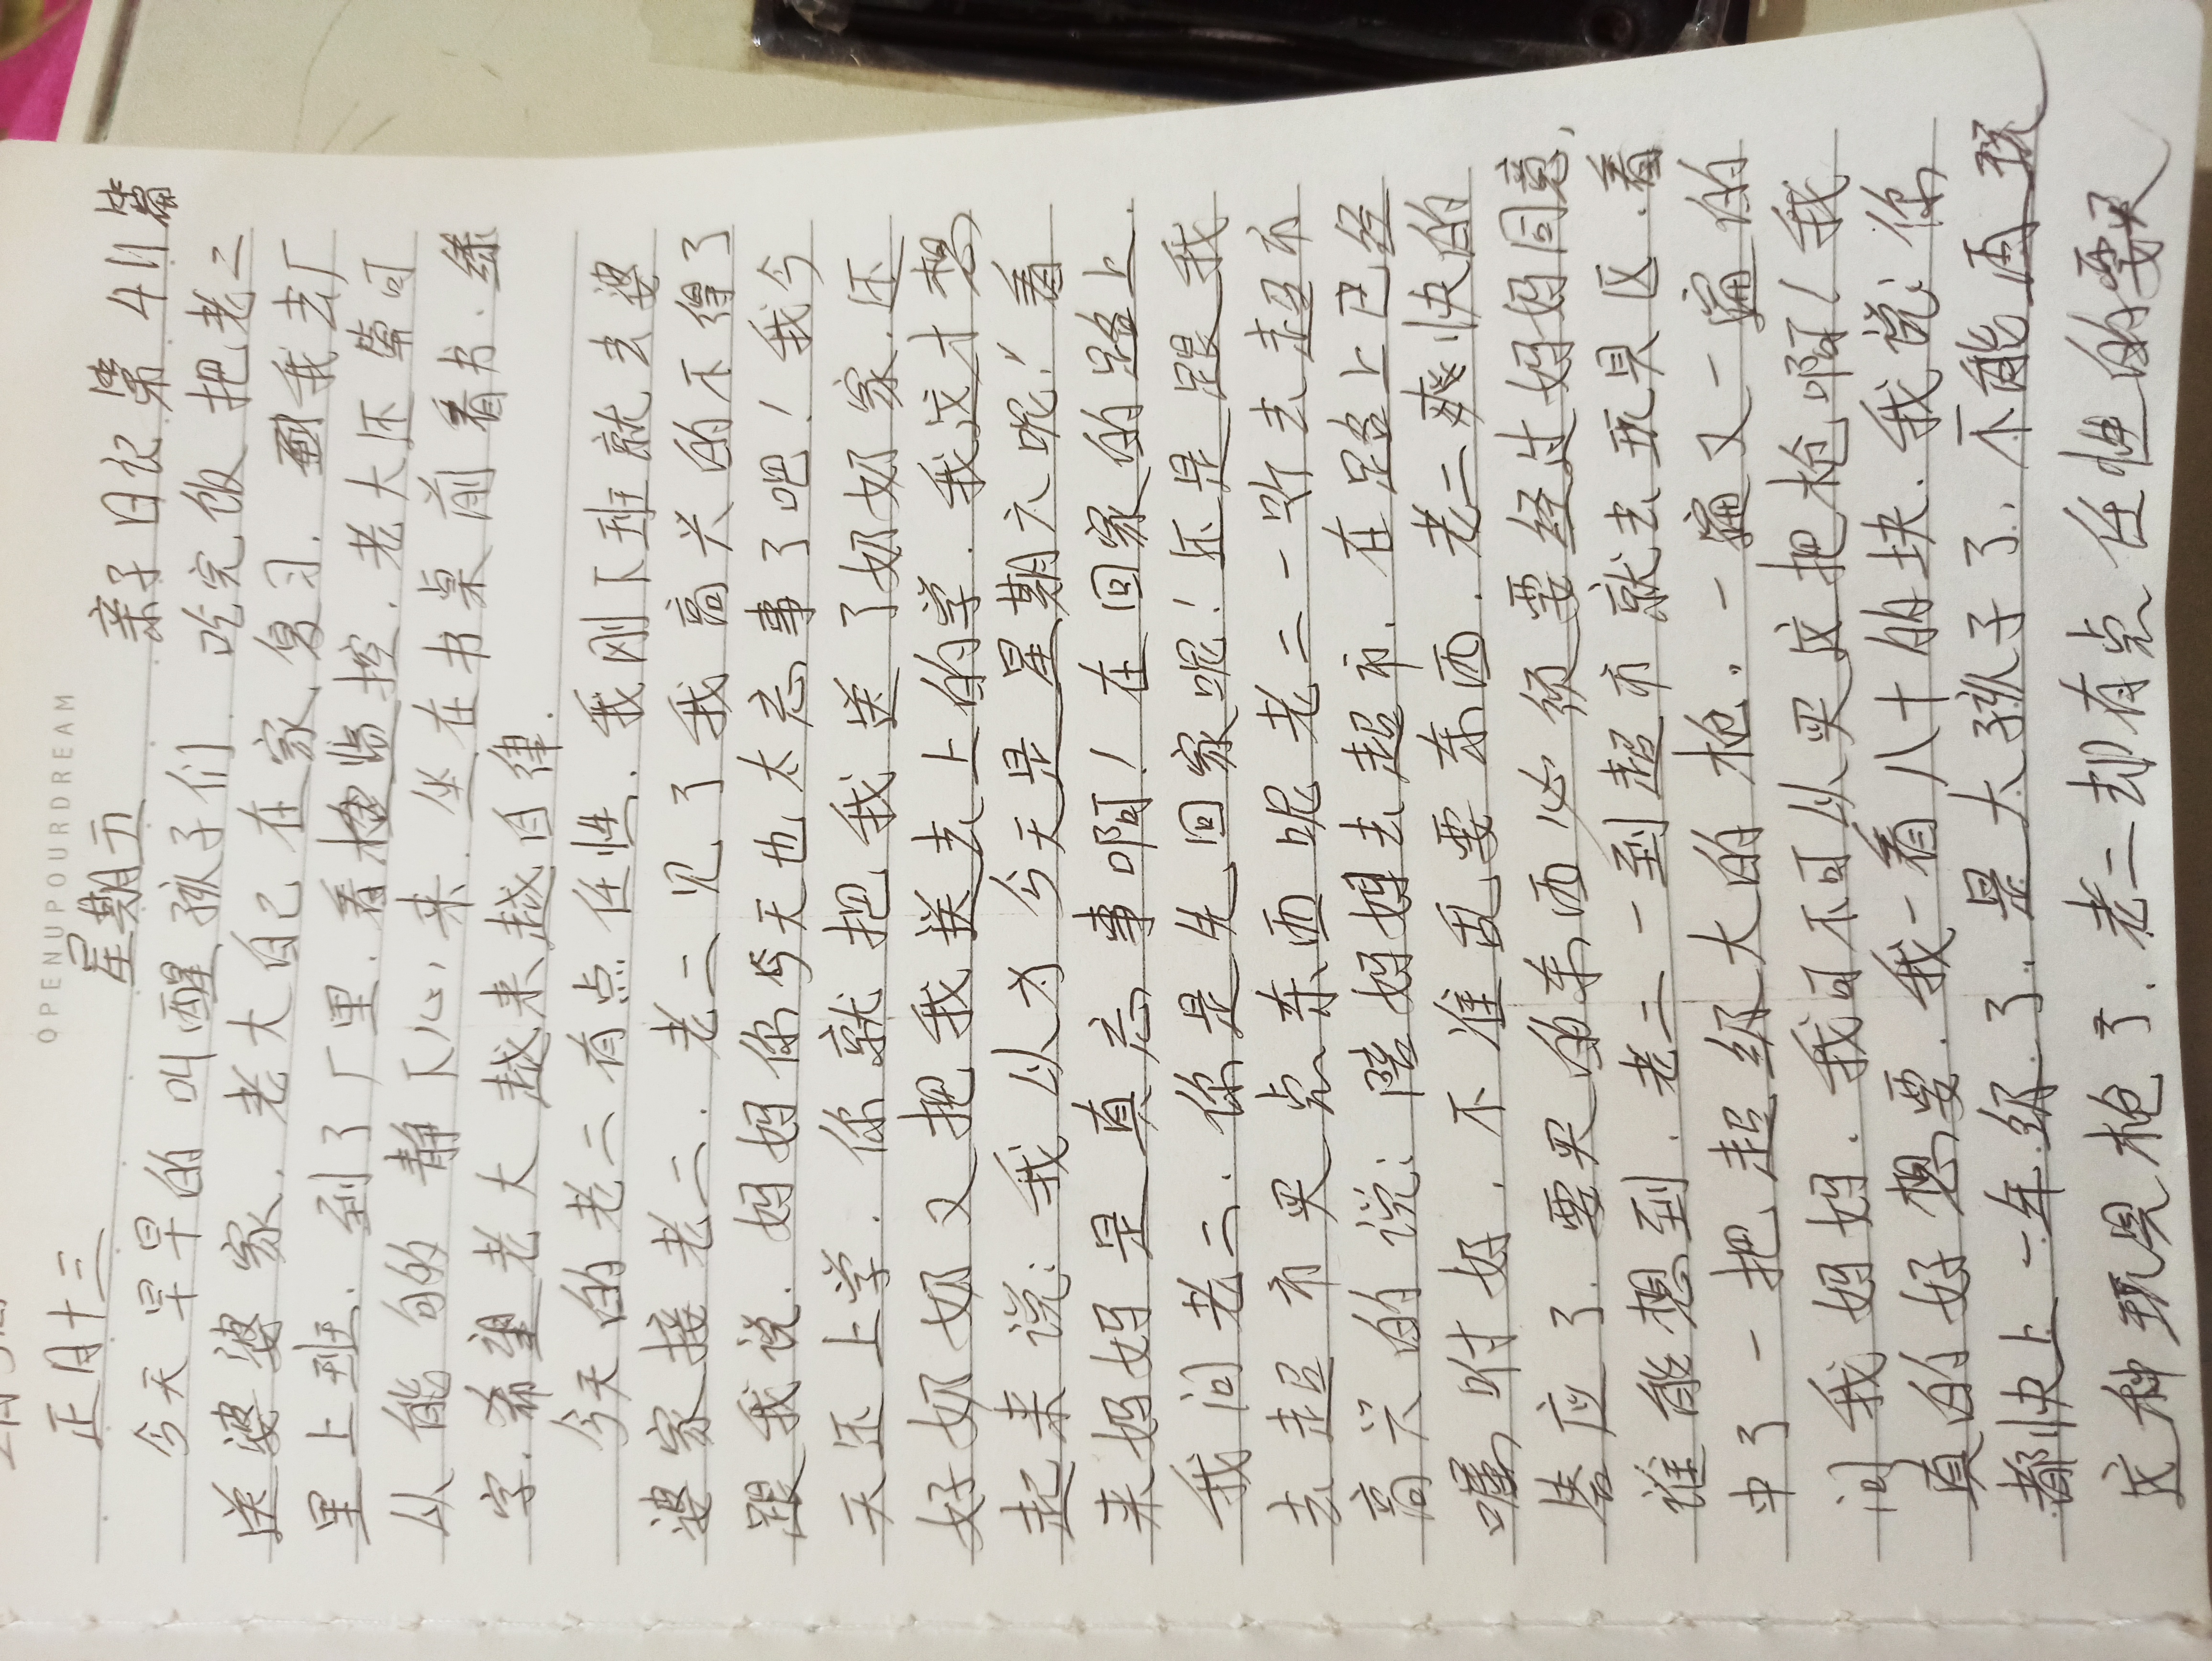 OPENUPOURDREAM
正月十三 星期六 亲子日记 第 411 篇
今天早早的 叫醒孩子们. 吃完饭 把老二
送婆婆家. 老大自己在家复习. 我去厂
里上班. 到了厂里. 看监控. 老大还蛮可
以 能 的 静下心来. 坐在书桌前看书. 练
字. 希望老大 越来越自律.
今天的老二有点任性. 我刚下班就去婆
婆家接老二. 老二见了我高兴的不得了
跟我说. 妈妈你今天也太忘事了吧! 我今
天还上学. 你就把我送了奶奶家. 还
好奶奶又把我送去上的学. 我这才想
起来说: 我以为今天是星期六呢! 看
来妈妈是真忘事啊! 在回家的路上.
我问老二. 你是先回家呢! 还是跟我
去超市买点东西呢 老二一听去超市
高兴的说: 陪妈妈去超市. 在路上已经
嘱咐好. 不准乱要东西. 老二爽快的
答应了. 要买的东西必须要经过妈妈同意,
谁能想到. 老二一到超市就去玩具区. 看
中了一把超级大的枪. 一遍又一遍的
问我妈妈. 我可不可以买这把枪啊! 我
真的好想要. 我一看八十的块. 我说: 你
都快上一年级了. 是大孩子了. 不能再玩
这种玩具枪了. 老二却有点任性的要买